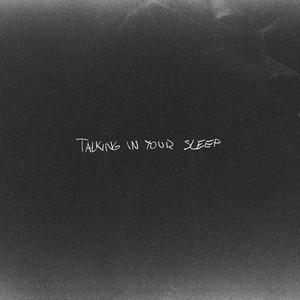 TALKING IN YOUR SLEEP